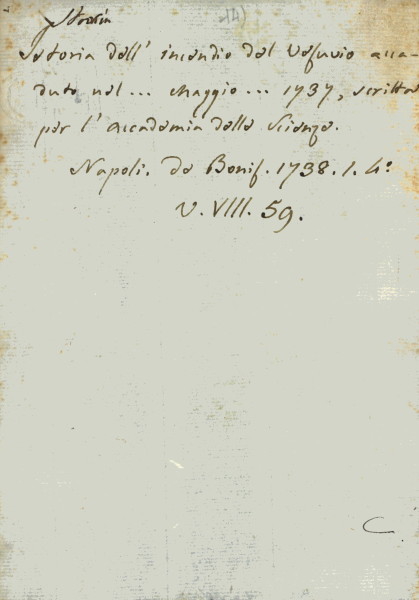 Istoria
Istoria dell' incendio del Vesuvio acca-
duto nel ... Maggio ... 1737, scritta
per l' Accademia delle Scienze.
Napoli. de Bonif. 1738. 1. 4°
V. VIII. 59.
C